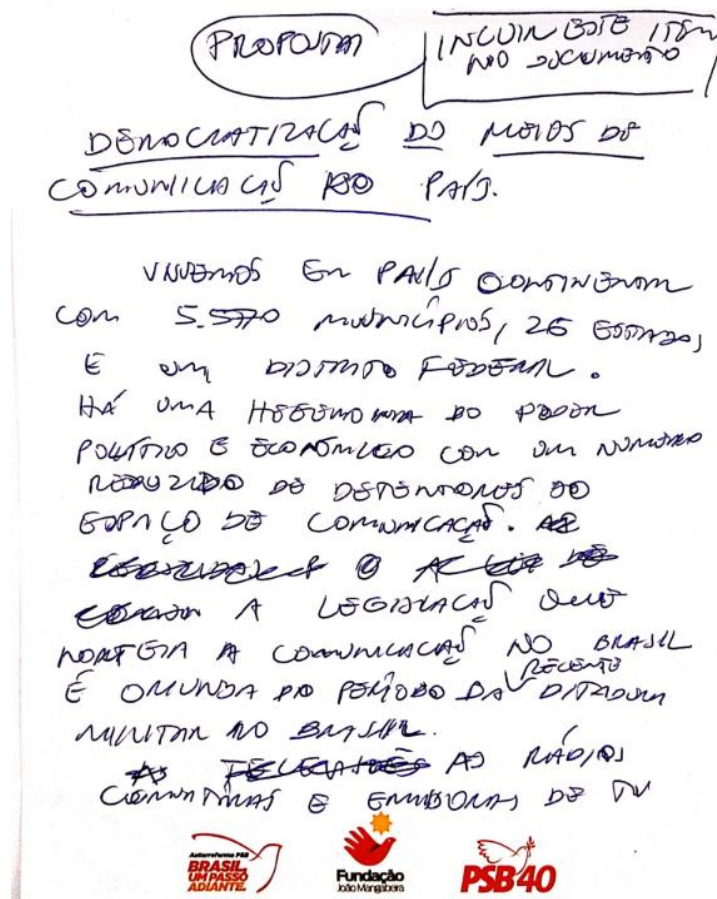 PROPOSTA
INCLUIR ESTE ITEM
NO DOCUMENTO
DEMOCRATIZAÇÃO DO MEIOS DE
COMUNICAÇÃO NO PAÍS.
VIVEMOS EM PAÍS CONTINENTAL
COM 5.570 MUNICÍPIOS, 26 ESTADOS,
E UM DISTRITO FEDERAL.
HÁ UMA HEGEMONIA DO PODER
POLÍTICO E ECONÔMICO COM UM NÚMERO
REDUZIDO DE DETENTORES DO
ESPAÇO DE COMUNICAÇÃO.
A LEGISLAÇÃO QUE
NORTEIA A COMUNICAÇÃO NO BRASIL
É ORIUNDA DO PERÍODO DA RECENTE DITADURA
MILITAR NO BRASIL.
AS TELEVISÕES AS RÁDIOS
COMUNITÁRIAS E EMISSORAS DE TV
Autorreforma PSB
BRASIL
UM PASSO
ADIANTE.
Fundação
João Mangabeira
PSB 40